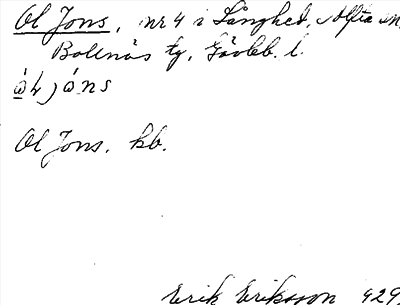 Ol Jons, nr 4 i Långhed, Alfta sn,
Bollnäs tg, Gävleb. l.
Ol Jons. kb.
Erik Eriksson 1929